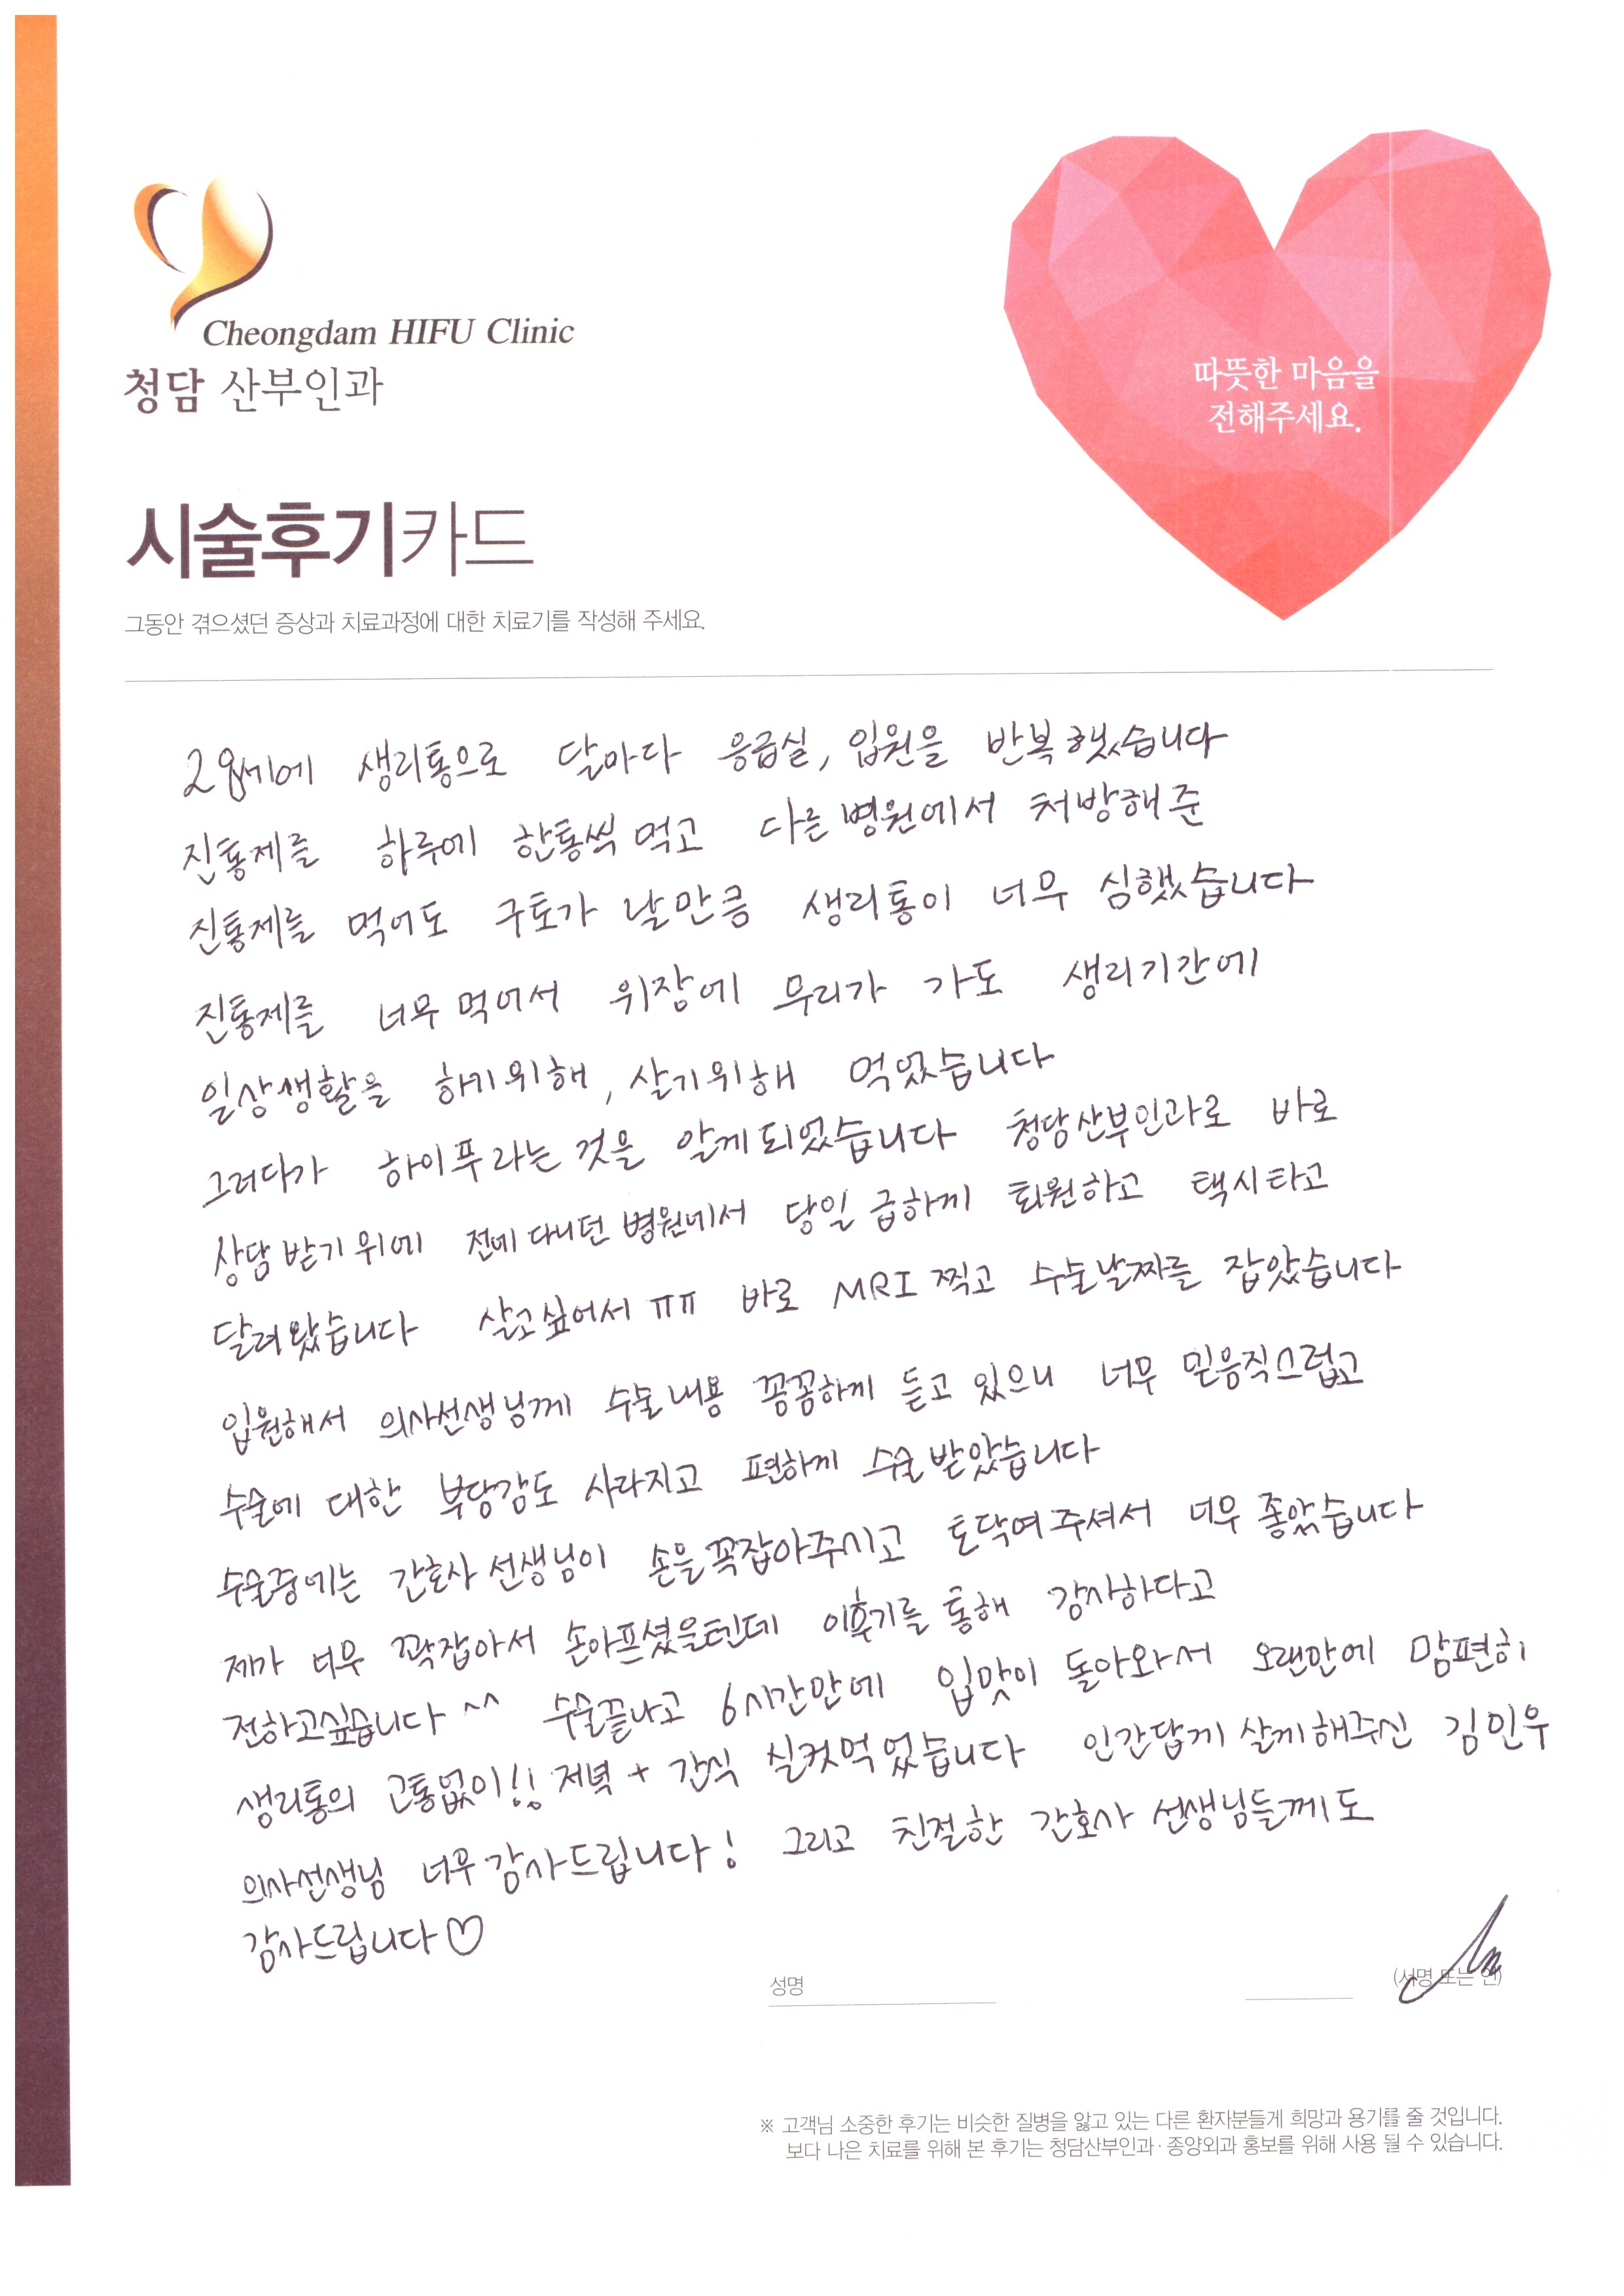 Cheongdam HIFU Clinic
청담 산부인과
따뜻한 마음을
전해주세요.
시술후기카드
그동안 겪으셨던 증상과 치료과정에 대한 치료기를 작성해 주세요.
28세에 생리통으로 달마다 응급실, 입원을 반복했습니다
진통제를 하루에 한통씩 먹고 다른병원에서 처방해준
진통제를 먹어도 구토가 날만큼 생리통이 너무 심했습니다
진통제를 너무먹어서 위장에 무리가 가도 생리기간에
일상생활을 하기위해, 살기위해 먹었습니다
그러다가 하이푸라는 것을 알게되었습니다 청담산부인과로 바로
상담받기위에 전에다니던 병원에서 당일 급하게 퇴원하고 택시타고
달려왔습니다 살고싶어서 ㅠㅠ 바로 MRI 찍고 수술날짜를 잡았습니다
입원해서 의사선생님께 수술내용 꼼꼼하게 듣고 있으니 너무 믿음직스럽고
수술에 대한 부담감도 사라지고 편하게 수술받았습니다
수술중에는 간호사선생님이 손을꼭잡아주시고 토닥여주셔서 너무 좋았습니다
제가 너무 꽉잡아서 손아프셨을텐데 이후기를 통해 감사하다고
전하고싶습니다 ^^ 수술끝나고 6시간만에 입맛이 돌아와서 오랜만에 맘편히
생리통의 고통없이!! 저녁 + 간식 실컷먹었습니다 인간답게 살게해주신 김민우
의사선생님 너무감사드립니다! 그리고 친절한 간호사 선생님들께도
감사드립니다♡
성명 (서명 또는 인)
※ 고객님 소중한 후기는 비슷한 질병을 앓고 있는 다른 환자분들게 희망과 용기를 줄 것입니다.
보다 나은 치료를 위해 본 후기는 청담산부인과·종양외과 홍보를 위해 사용 될 수 있습니다.